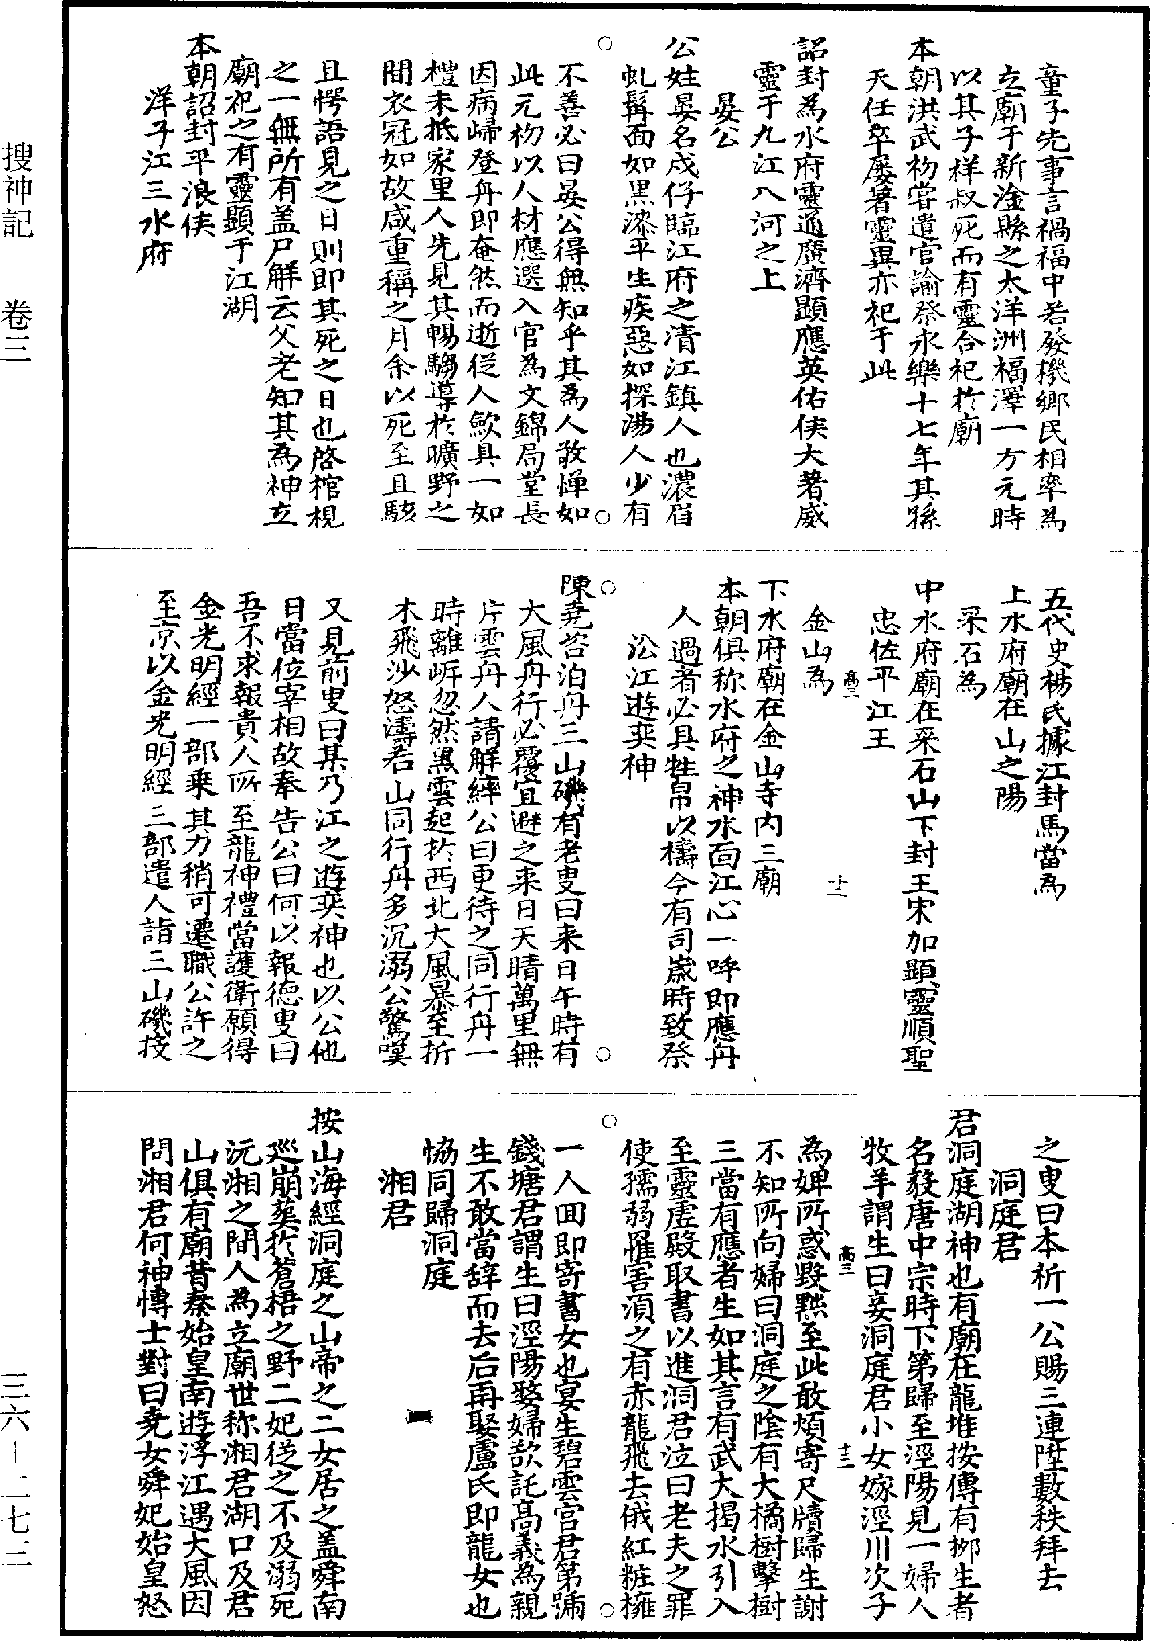 搜神記　卷三
三六－二七三
童子先事言禍福中若發機鄉民相率為
立廟于新淦縣之太洋洲福澤一方元時
以其子祥叔死而有靈合祀於廟
本朝洪武初嘗遣官諭祭永樂十七年其孫
天任卒屡著靈異亦祀于此
詔封為水府靈通廣濟顯應英佑侠大著威
靈于九江八河之上
晏公
公姓晏名戍仔臨江府之清江鎮人也濃眉
虬髯面如黑漆平生疾惡如探湯人少有
不善必曰晏公得無知乎其為人敬憚如
此元初以人材應選入官為文錦局堂長
因病歸登舟即奄然而逝從人歛具一如
禮未抵家里人先見其暢騶導於曠野之
間衣冠如故咸重稱之月余以死至且駭
且愕語見之日則即其死之日也啓棺視
之一無所有盖尸解云父老知其為神立
廟祀之有靈顯于江湖
本朝詔封平浪侠
洋子江三水府
五代史楊氏據江封馬當為
上水府廟在山之陽
采石為
中水府廟在采石山下封王宋加顯靈順聖
忠佐平江王
高三
金山為
十二
下水府廟在金山寺内三廟
本朝俱称水府之神水面江心一呼即應舟
人過者必具牲帛以檮今有司嵗時致祭
㳂江遊奕神
陳堯咨泊舟三山磯有老叟曰来日午時有
大風舟行必覆宜避之来日天晴萬里無
片雲舟人請解縴公曰更待之同行舟一
時離岍忽然黑雲起於西北大風暴至折
木飛沙怒濤若山同行舟多沉溺公驚嘆
又見前叟曰某乃江之遊奕神也以公他
日當位宰相故奉告公曰何以報德叟曰
吾不求報貴人所至龍神禮當護衛願得
金光明經一部乗其力稍可遷職公許之
至京以金光明經三部遣人詣三山磯投
之叟曰本祈一公賜三連陞數秩拜去
洞庭君
君洞庭湖神也有廟在龍堆按傳有栁生者
名毅唐中宗時下第歸至涇陽見一婦人
牧羊謂生曰妾洞庭君小女嫁涇川次子
高三
十三
為婢所惑毀黜至此敢煩寄尺牘歸生謝
不知所向婦曰洞庭之陰有大橘樹擊樹
三當有應者生如其言有武大揭水引入
至靈虚殿取書以進洞君泣曰老夫之罪
使孺弱罹害湏之有赤龍飛去俄紅粧擁
一人囬即寄書女也宴生碧雲宮君第號
錢塘君謂生曰涇陽嫠婦欲託高義為親
生不敢當辞而去后再娶盧氏即龍女也
恊同歸洞庭
湘君
按山海經洞庭之山帝之二女居之盖舜南
巡崩葬於蒼梧之野二妃從之不及溺死
沅湘之間人為立廟世称湘君湖口及君
山俱有廟昔秦始皇南遊浮江遇大風因
問湘君何神愽士對曰堯女舜妃始皇怒